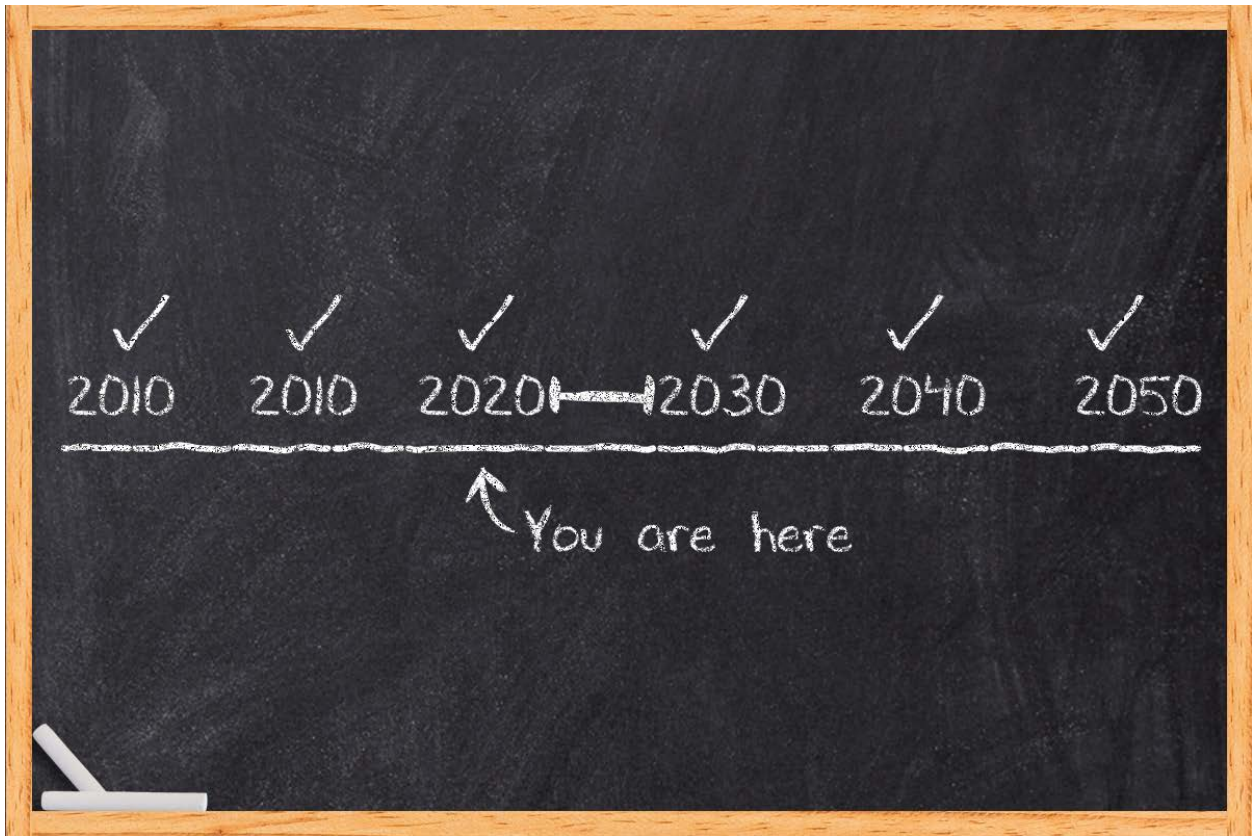 2010 2010 2020 2030 2040 2050
You are here